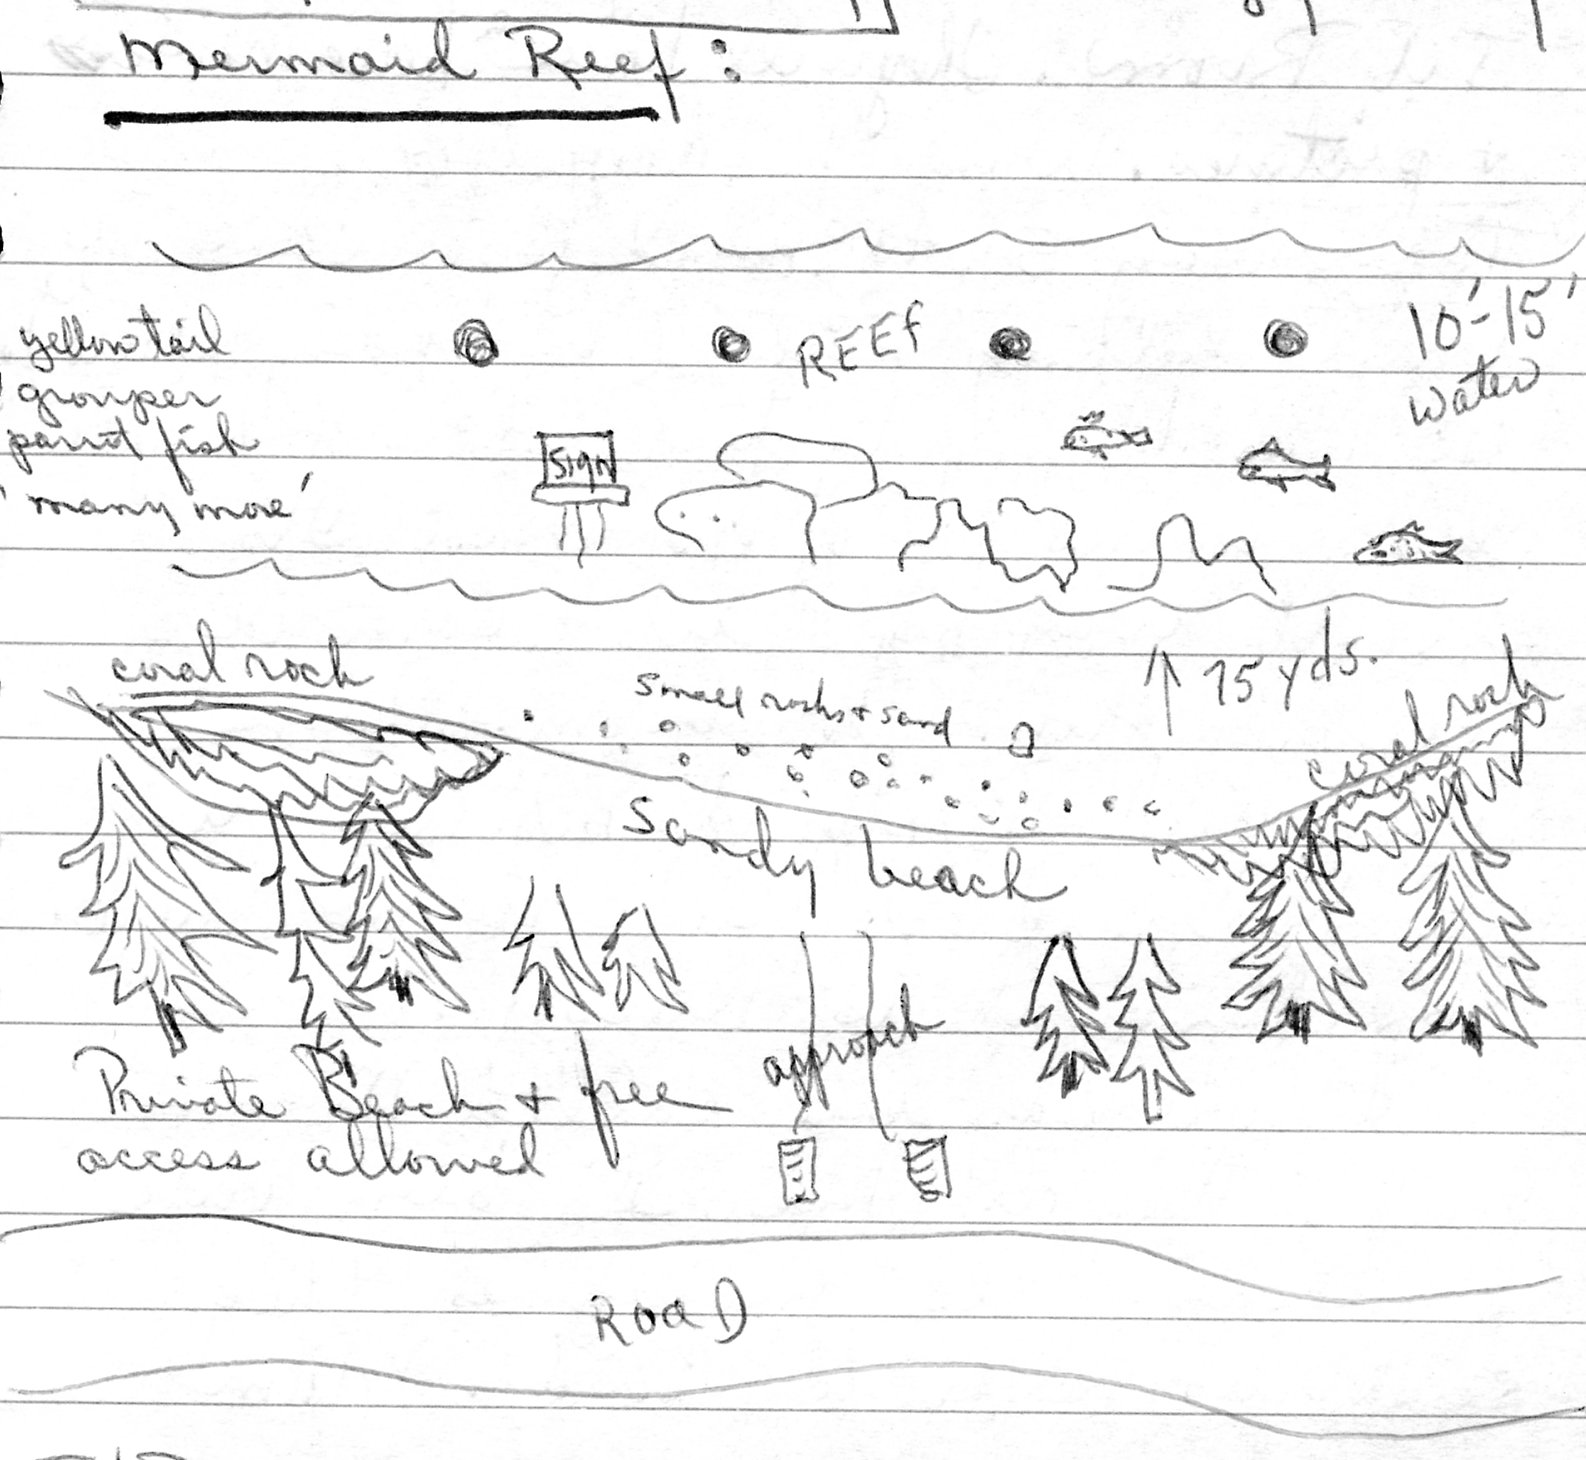 Mermaid Reef:
yellow tail
grouper
parrot fish
'many more'
REEf
10'-15'
water
Sign
coral rock
small rocks & sand
↑ 75 yds.
coral rock
Sandy beach
approach
Private Beach & free
access allowed
ROAD